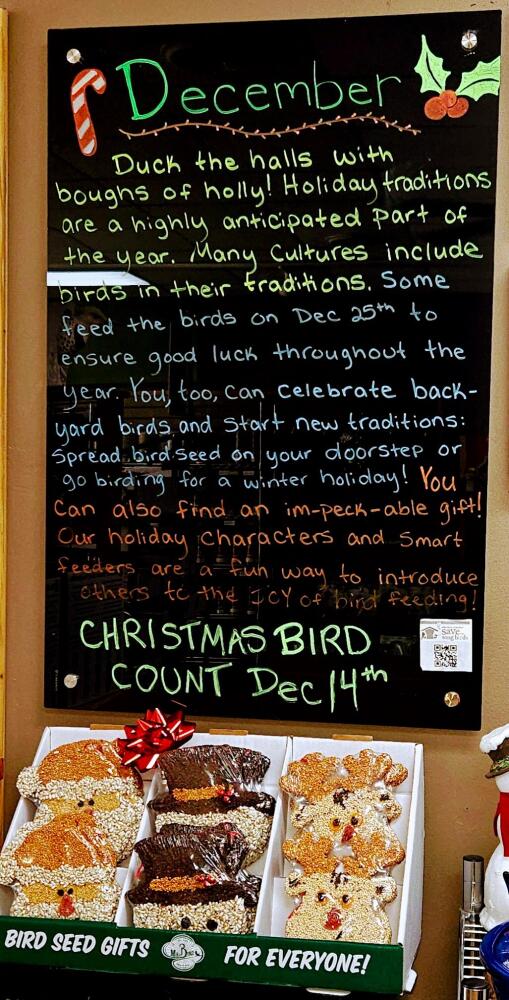 December
Duck the halls with
boughs of holly! Holiday traditions
are a highly anticipated part of
the year. Many Cultures include
birds in their traditions. Some
feed the birds on Dec 25th to
ensure good luck throughout the
year. You, too, can celebrate back-
yard birds and start new traditions:
Spread bird seed on your doorstep or
go birding for a winter holiday! You
can also find an im-peck-able gift!
Our holiday characters and smart
feeders are a fun way to introduce
others to the JOY of bird feeding!
CHRISTMAS BIRD
COUNT Dec 14th
Save
song birds
BIRD SEED GIFTS FOR EVERYONE!